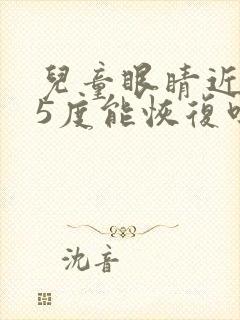 兒童眼睛近
5度能恢復
沈音